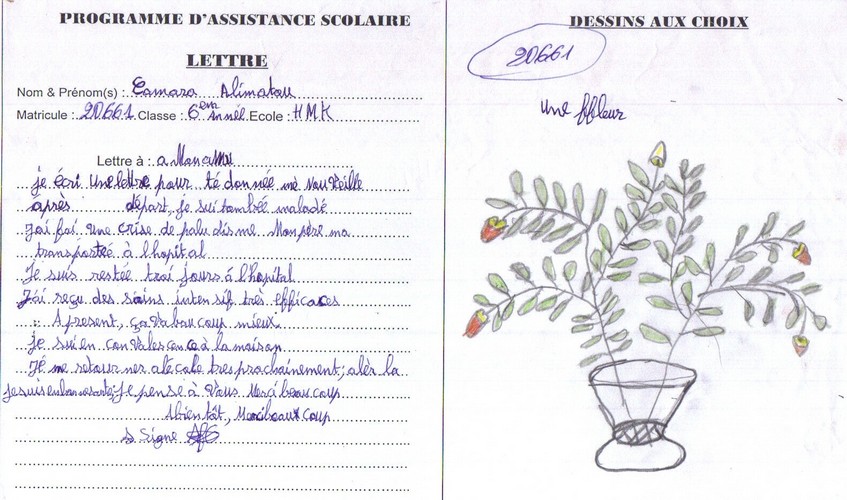 PROGRAMME D'ASSISTANCE SCOLAIRE
LETTRE
Nom & Prénom(s) : Camara Alimatou
Matricule : 20661 Classe : 6em année Ecole : HMK
Lettre à : a Mon ami
je écri une lettre pour té donnée mé nouveille
après départ, je sui tombée malade
J'ai fai une crise de paludisme. Mon père ma
transportée à l'hopital
Je suis restée troi jours á l'hopital
J'ai reçu des soins intensif très efficaces
Apresent, ça va baucoup mieux
je sui en convalescence à la maison
Je me retourner alécole tres prochainement; alèr la
je suis en bonne santé; je pense à Vous Merci beaucoup
Abientât, Merci beaux coup
Signe
DESSINS AUX CHOIX
20661
une ffleur